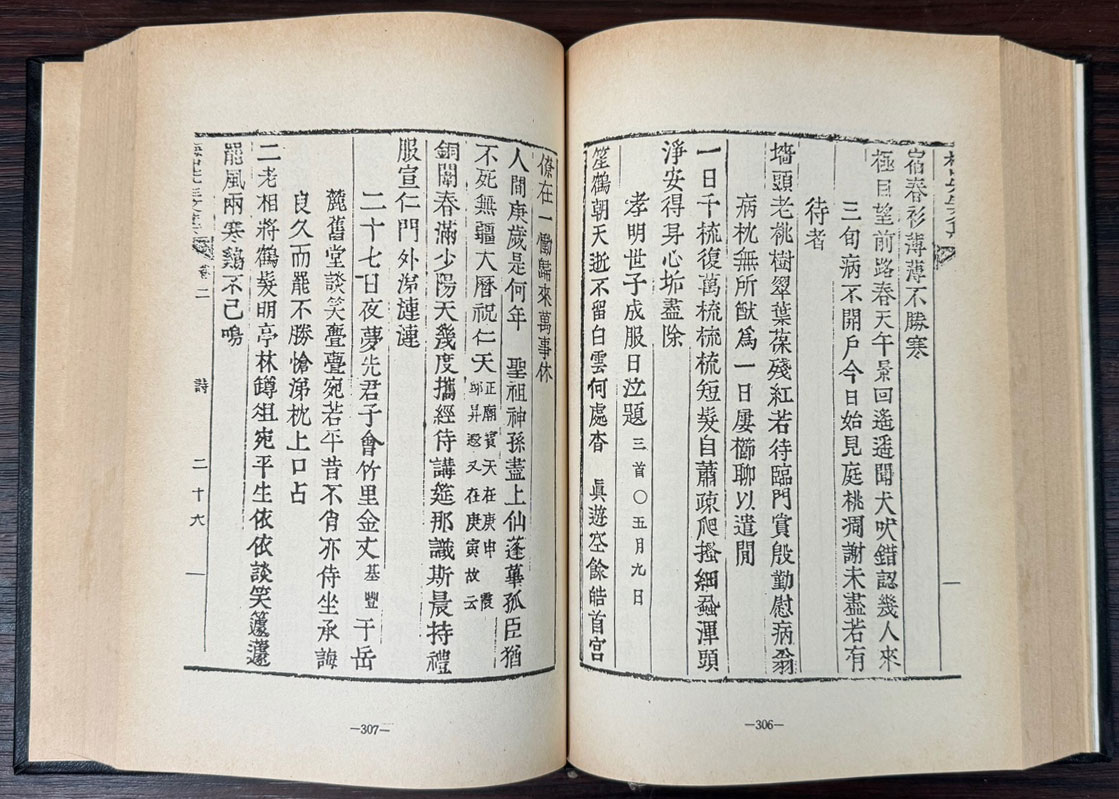 宿春衫薄薄不勝寒
極目望前路春天午景回遙遙聞犬吠錯認幾人來
三旬病不開戶今日始見庭桃凋謝未盡若有
待者
墻頭老桃樹翠葉葆殘紅若待臨門賞殷勤慰病翁
病枕無所猷爲一日屢櫛聊以遣閒
一日千梳復萬梳梳梳短髮自蕭疎爬搔細蝨渾頭
淨安得身心垢盡除
孝明世子成服日泣題三首〇五月九日
笙鶴朝天逝不留白雲何處杳眞遊空餘皓首宮
僚在一慟歸來萬事休
人間庚歲是何年聖祖神孫盡上仙蓬蓽孤臣猶
不死無疆大曆祝仁天正廟賓天在庚申霞邱昇遐又在庚寅故云
銅闈春滿少陽天幾度攜經侍講筵那識斯晨持禮
服宣仁門外淚漣漣
二十七日夜夢先君子會竹里金丈基豐于岳
麓舊堂談笑亹亹宛若平昔不肖亦侍坐承誨
良久而罷不勝愴涕枕上口占
二老相將鶴髮明亭林罇俎宛平生依依談笑蘧蘧
罷風雨寒鷄不已鳴
卷二 詩 二十六
—306—
—307—